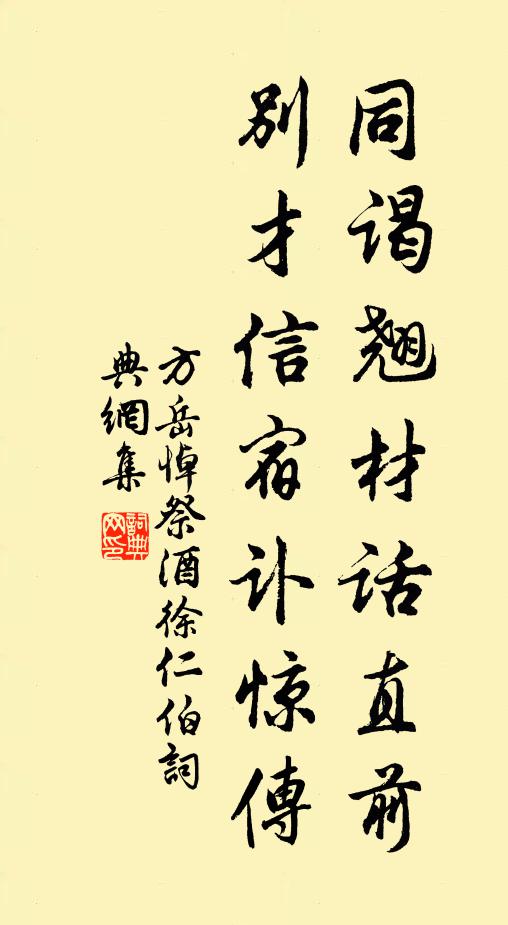 同谒翘材话直前
别才信宿讣惊傳
方岳悼祭酒徐仁伯詞
典網集
詞典
网印